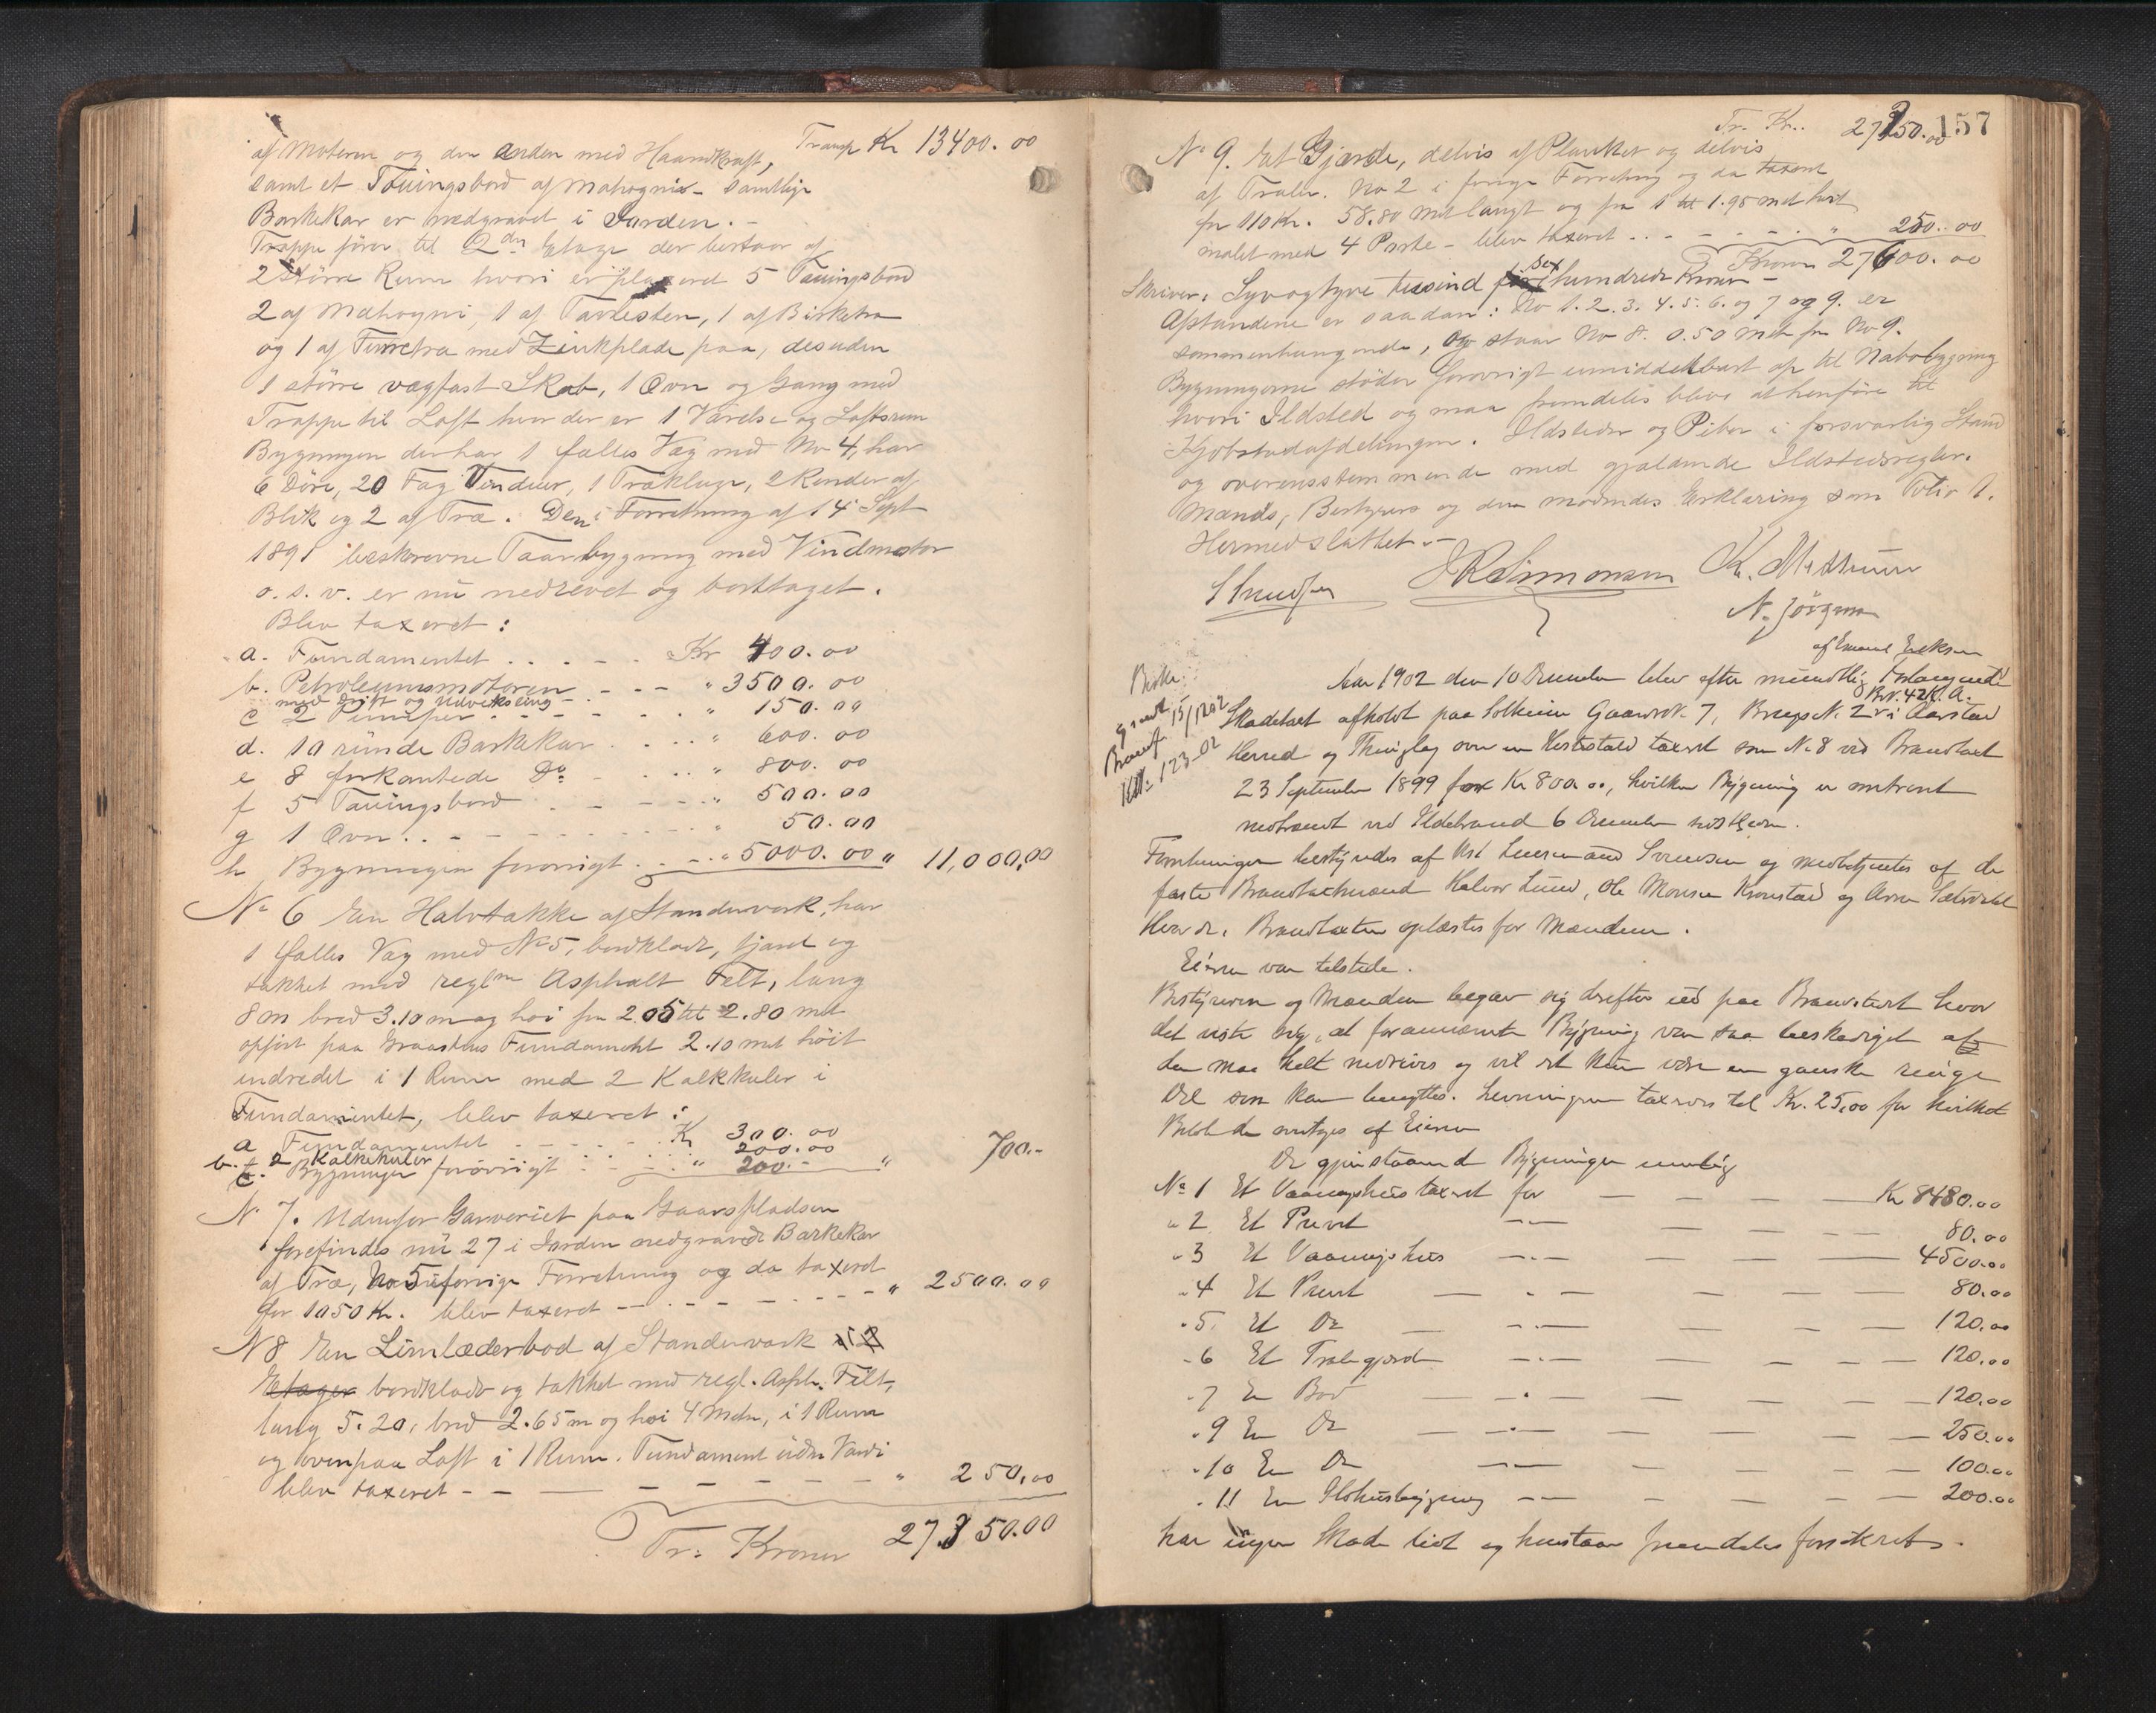 Transp Kr 13400.00
af Motoren og den anden med Haandkraft,
samt et Touingsbord af Mahogni - samtlige
Barkekar er nedgravet i Jorden. -
Trappe fører til 2den Etage der bestaar af
2 større Rum hvori er plaseret 5 Touingsbord
2 af Mahogni, 1 af Tavlesten, 1 af Birketræ
og 1 af Furretræ med Zinkplade paa, desuden
1 større vægfast Skab, 1 Ovn og Gang med
Trappe til Loft hvor der er 1 Værelse og Loftsrum
Bygningen der har 1 fælles Væg med No 4, har
6 Døre, 20 Fag Vinduer, 1 Træluge, 2 Render af
Blik og 2 af Træ. Den i Forretning af 14 Sept
1891 beskrevne Taarnbygning med Vindmotor
o. s. v. er nu nedrevet og borttaget.
Blev taxeret:
a. Fundamentet . . . . . Kr 400.00
b. Petroleumsmotoren - - - " 3500.00
med Drift og Udveksling -
c 2 Pumper - - - - - " 150.00
d. 10 runde Barkekar . . . . " 600.00
e 8 firkantede Do - . . . " 800.00
f 5 Touingsbord . . - - - " 500.00
g 1 Ovn . . - - - - - - " 50.00
h Bygningen forøvrigt . . - . " 5000.00 " 11,000,00
No 6 En Halvtakke af Standerværk, har
1 fælles Væg med No 5, bordklædt, tjæret og
tækket med reglm Asphalt Felt, lang
8 m bred 3.10 m og høi fra 2.05 til 2.80 met
opført paa Graastens Fundament 2.10 met høit
indredet i 1 Rum med 2 Kalkkuler i
Fundamentet, blev taxeret:
a Fundamentet - - - - . . . Kr 300.00
b. 2 Kalkekuler 200.00
c. Bygningen forøvrigt . - - . " 200.- " 700.-
No 7. Udenfor Garveriet paa Gaardspladsen
forefindes nu 27 i Jorden nedgravede Barkekar
af Træ, No 5 i forrige Forretning og da taxeret
for 1050 Kr. blev taxeret - - - - - - - " 2500.00
No 8 En Limlæderbod af Standerværk i 2
Etager bordklædt og tækket med regl. Asph. Felt,
lang 5.20, bred 2.65 m og høi 4 Meter, i 1 Rum
og ovenpaa Loft i 1 Rum. Fundament uden Værdi
blev taxeret - - - - - - - " 250,00
Tr: Kroner 27350.00
157
Tr. Kr.. 27350.00
No 9. Et Gjærde, delvis af Planker og delvis
af Traler. No 2 i forrige Forretning og da taxeret
for 110 Kr. 58.80 met langt og fra 1 til 1.95 met høit
malet med 4 Porte - blev taxeret . . - - - - . " 250.00
Kroner 27600.00
Skriver: Syvogtyve tusind sex hundrede Kroner -
Afstandene er saadan: No 1. 2. 3. 4. 5. 6. og 7 og 9. er
sammenhængende, og staar No 8. 0.50 Meter fra No 9.
Bygningerne støder forøvrigt umiddelbart op til Nabobygning
hvori Ildsted og maa fremdeles blive at henføre til
Kjøbstadafdelingen. Ildsteder og Piber i forsvarlig Stand
og overensstemmende med gjældende Ildstedsregler.
Mænds, Bestyrers og den mødendes Erklæring som Folio 1.
Hermed sluttet.-
S Knudsen J R Simonsen K. Mathisen
N. Jörgensen
af Emanuel Eriksen
Aar 1902 den 10 December blev efter mundtlig Forlangende
Bev. 42 K. A.
Skadetaxt afholdt paa Solheim Gaards N. 7, Brugs N. 2 i Aarstad
Herred og Thinglag over en Hestestald taxeret som No 8 ved Brandtaxt
23 September 1899 for Kr 800.00, hvilken Bygning er omtrent
nedbrændt ved Ildebrand 6 December sidstleden.
Brandf.
15/12 02
123-02
Forretningen bestyredes af Kst Lensmand Svendsen og medbetjentes af de
faste Brandtaxtmænd Halvor Lund, Ole Monsen Kronstad og Arne Sælevdal
Hvor da. Brandtaxten oplæstes for Mændene.
Eieren var tilstede.
Bestyreren og Mændene begav sig derefter ud paa Brandstedet hvor
det viste sig, at forannævnte Bygning var saa beskadiget at
den maa helt nedrives og vil det kun være en ganske ringe
Del som kan benyttes. Levningen taxeres til Kr. 25,00 for hvilket
Beløb de modtages af Eieren
De gjenstaaende Bygninger nemlig
No 1 Et Vaaningshus taxeret for — — — — Kr 8480.00
" 2 Et Privet — — — — 80.00
" 3 Et Vaaningshus — — — — 4500.00
" 4 Et Privet — — — — 80.00
" 5 Et Do — — — — 120.00
" 6 Et Tralegjerde — — — — 120.00
" 7 En Bod — — — — 120.00
" 9 En Do — — — — 250.00
" 10 En Do — — — — 100.00
" 11 En Ildhusbygning — — — — 200.00
har ingen Skade lidt og henstaar fremdeles forsikret.